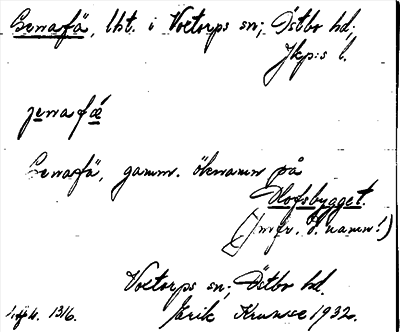 Genafä, lht. i Voetorps sn; Östbo hd;
Jkp:s l.
jenafǽ
Genafä, gamm. öknamn på
Olofsbygget.
(Jmfr. d. namn!)
Voetorps sn; Östbo hd.
1316. Erik Kransee 1932.